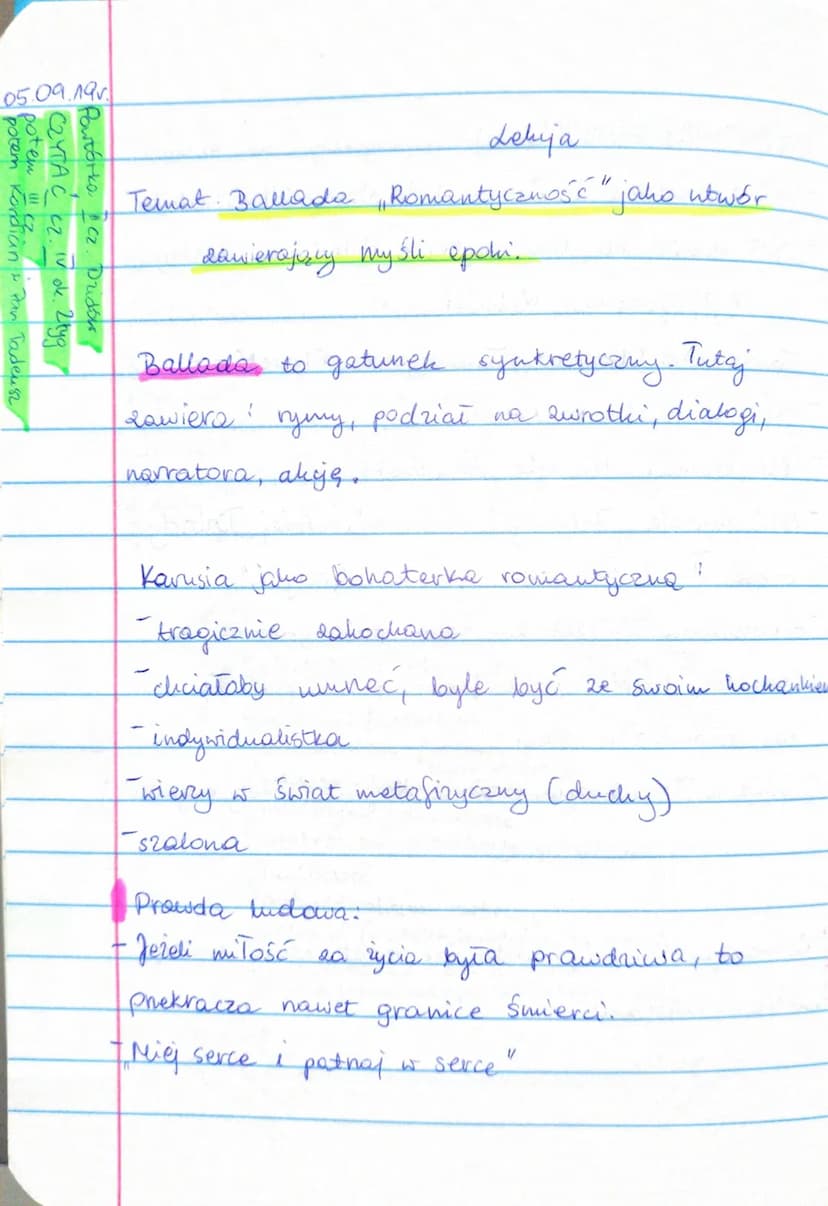 05.09.19r.
Powtórka II cz. Dziadów
CZYTAĆ cz. IV ok. 2tyg
potem III cz.
potem Kordian i Pan Tadeusz
Lekcja
Temat. Ballada „Romantyczność" jako utwór
zawierający myśli epoki.
Ballada to gatunek synkretyczny. Tutaj
zawiera: rymy, podział na zwrotki, dialogi,
narratora, akcję.
Karusia jako bohaterka romantyczna:
- tragicznie zakochana
- chciałaby umrzeć, byle być ze swoim kochankiem
- indywidualistka
- wierzy w świat metafizyczny (duchy)
- szalona
Prawda ludowa:
- Jeżeli miłość za życia była prawdziwa, to
przekracza nawet granice śmierci.
- „Miej serce i patrzaj w serce"